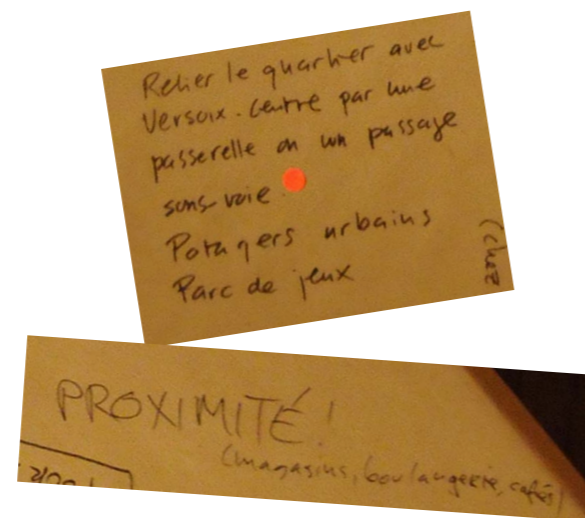 Relier le quartier avec
Versoix-centre par une
passerelle ou un passage
sous-voie.
Potagers urbains
Parc de jeux
(chez
PROXIMITÉ!
(magasins, boulangerie, cafés)